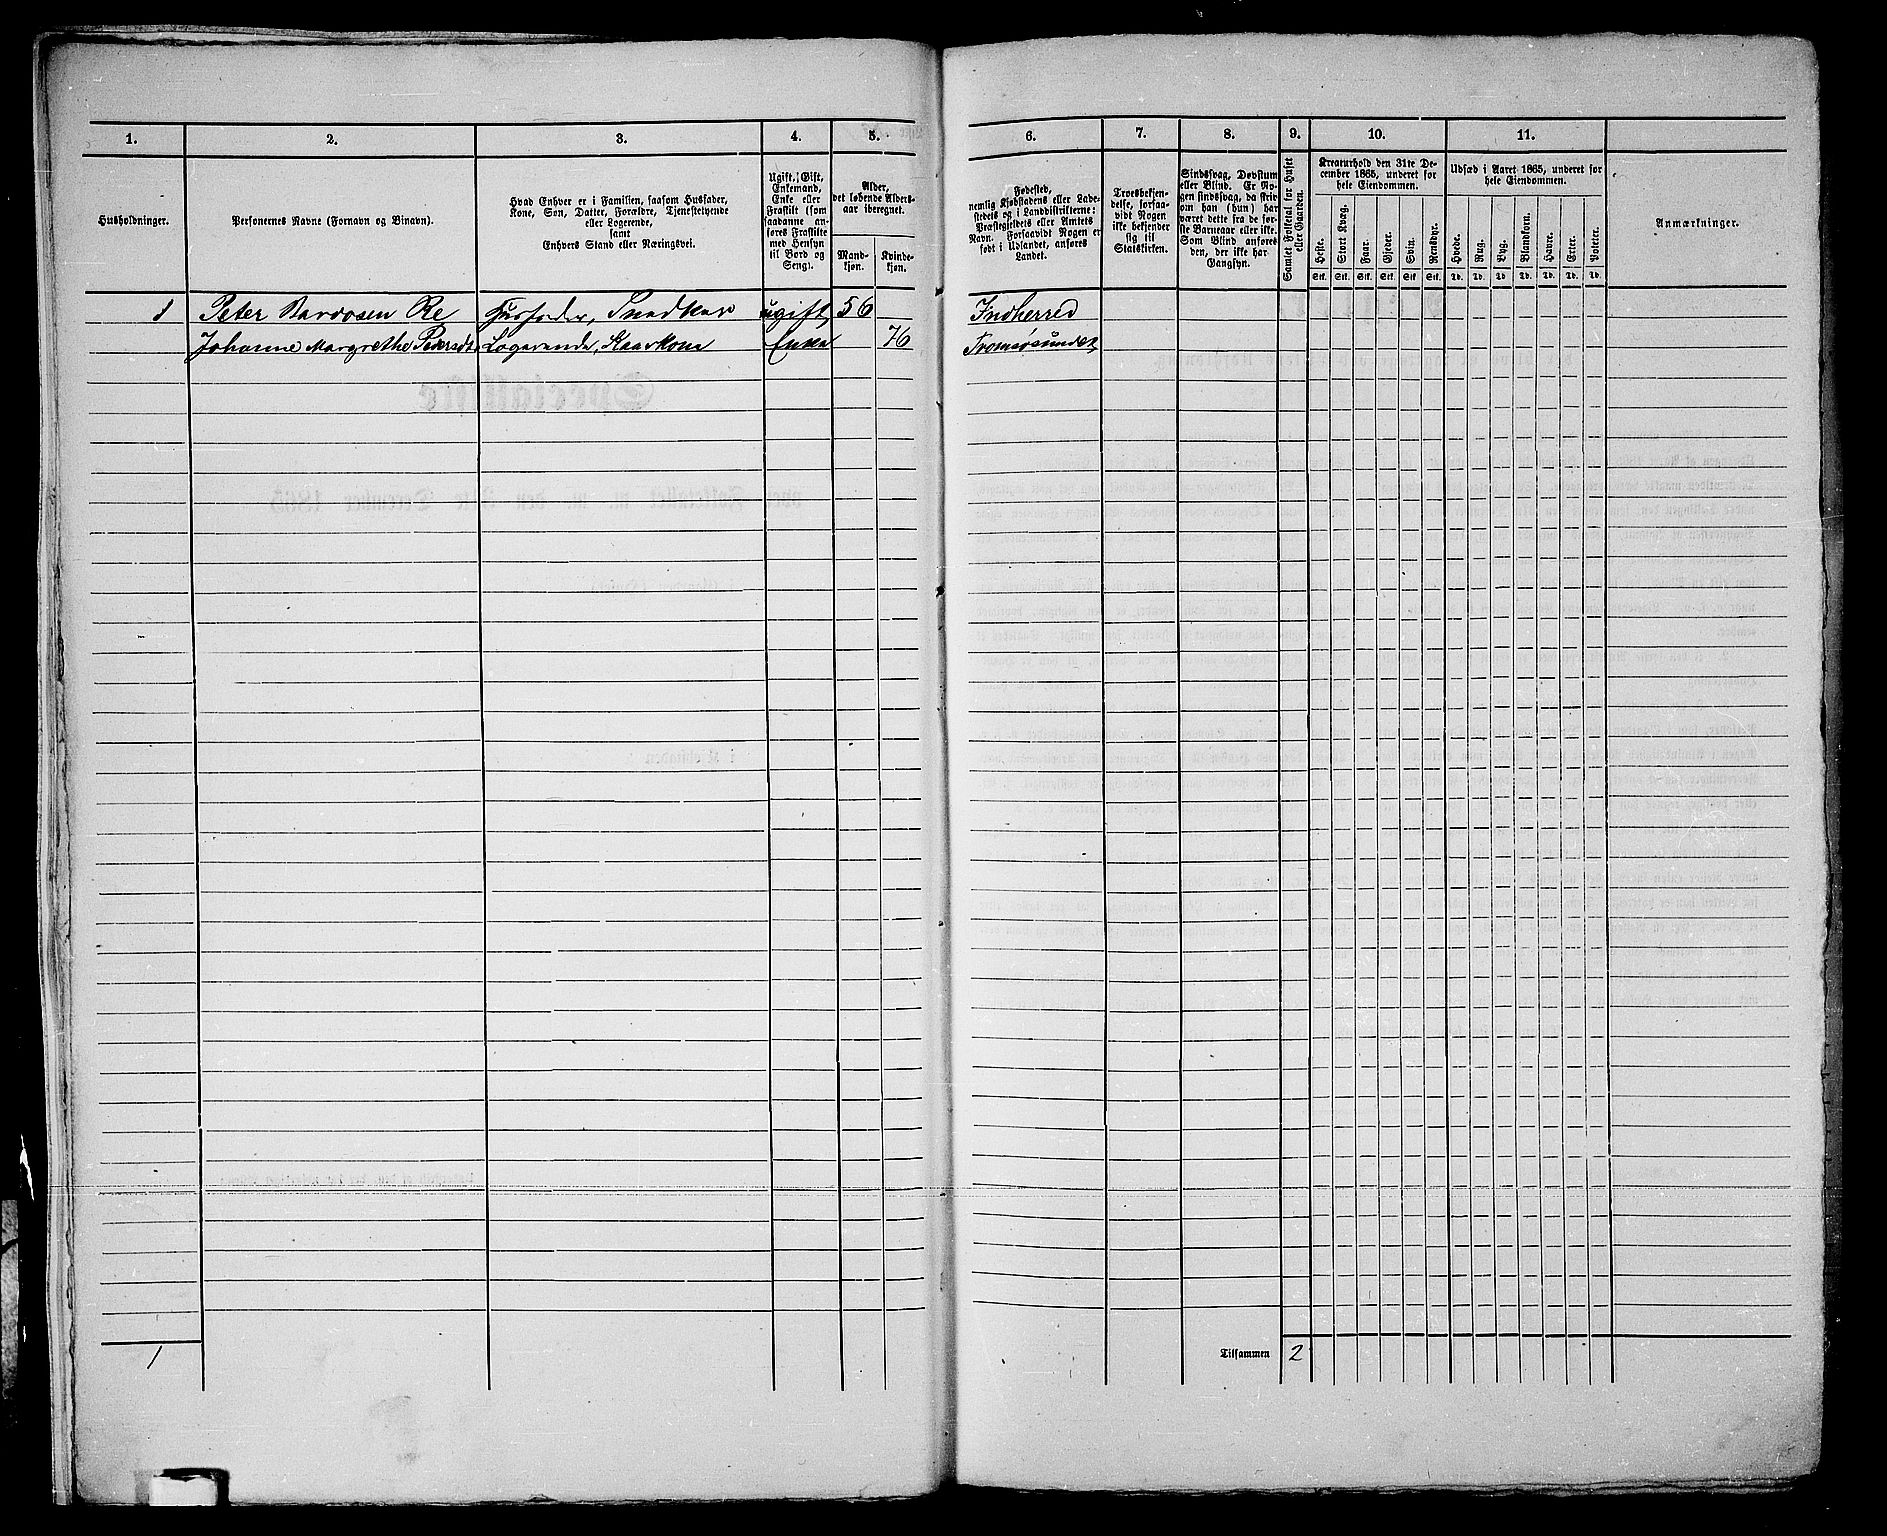 1. 2. 3. 4. 5. 6. 7. 8. 9. 10. 11.
Husholdninger.
Personernes Navne (Fornavn og Binavn).
Hvad Enhver er i Familien, saasom Husfader,
Kone, Søn, Datter, Forældre, Tjenestetyende
eller Logerende,
samt
Enhvers Stand eller Næringsvei.
Ugift, Gift,
Enkemand,
Enke eller
Fraskilt (som
saadanne an-
føres Fraskilte
med Hensyn
til Bord og
Seng).
Alder,
det løbende Alders-
aar iberegnet.
Mand-
kjøn.
Kvinde-
kjøn.
Fødested,
nemlig Kjøbstadens eller Lade-
stedets og i Landdistrikterne:
Præstegjeldets eller Amtets
Navn. Forsaavidt Nogen er
født i Udlandet, anføres
Landet.
Troesbekjen-
delse, forsaa-
vidt Nogen
ikke bekjender
sig til
Statskirken.
Sindssvag, Døvstum
eller Blind. Er No-
gen sindssvag, da skrives
om han (hun) har
været dette fra de før-
ste Barneaar eller ikke.
Som Blind anføres
den, der ikke har
Gangsyn.
Samlet Folketal for Huset
eller Gaarden.
Kreaturhold den 31te De-
cember 1865, underet for
hele Eiendommen.
Heste. Stort Kvæg. Faar. Gjeder. Svin. Rensdyr.
Stk. Stk. Stk. Stk. Stk. Stk.
Udsæd i Aaret 1865, underet for
hele Eiendommen.
Hvede. Rug. Byg. Blandkorn. Havre. Erter. Poteter.
Td. Td. Td. Td. Td. Td. Td.
Anmærkninger.
1 Peter Bardosen Re Husfader, Snedker ugift 56 Indherred
Johanne Margrethe Pedersdt Logerende, Kaarkone Enke 76 Tromsøsundet
1 Tilsammen 2